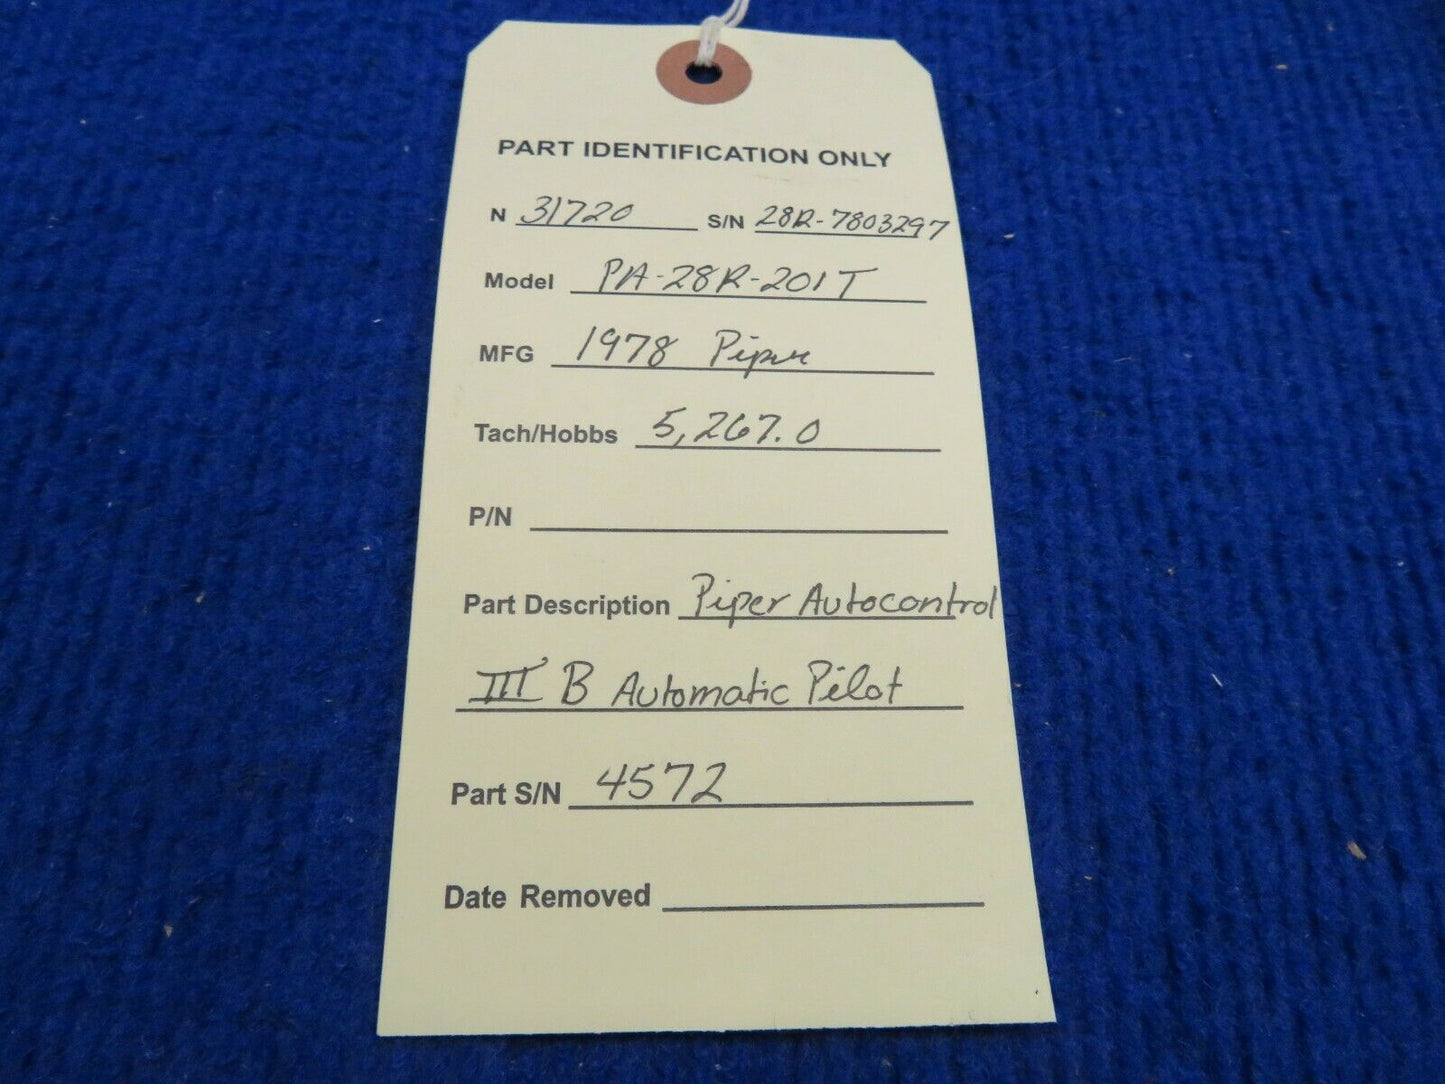 PART IDENTIFICATION ONLY
N 31720 S/N 28R-7803297
Model PA-28R-201T
MFG 1978 Piper
Tach/Hobbs 5,267.0
P/N
Part Description Piper Autocontrol
III B Automatic Pilot
Part S/N 4572
Date Removed